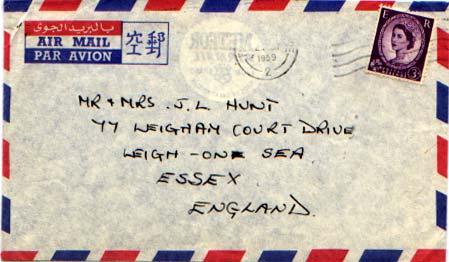 بالبريد الجوي
AIR MAIL
PAR AVION
空郵
METEOR
1959
2
E R
3D
MR & MRS. J. L HUNT
77 LEIGHAM COURT DRIVE
LEIGH - ONE SEA
ESSEX
ENGLAND.